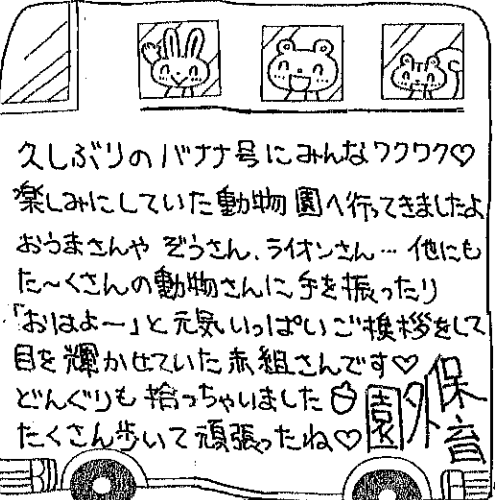 久しぶりのバナナ号にみんなワクワク♡
楽しみにしていた動物園へ行ってきましたよ
おうまさんや ぞうさん、ライオンさん… 他にも
た〜くさんの動物さんに手を振ったり
「おはよー」と元気いっぱいご挨拶をして
目を輝かせていた赤組さんです♡
どんぐりも拾っちゃいました
たくさん歩いて頑張ったね♡
園外保育